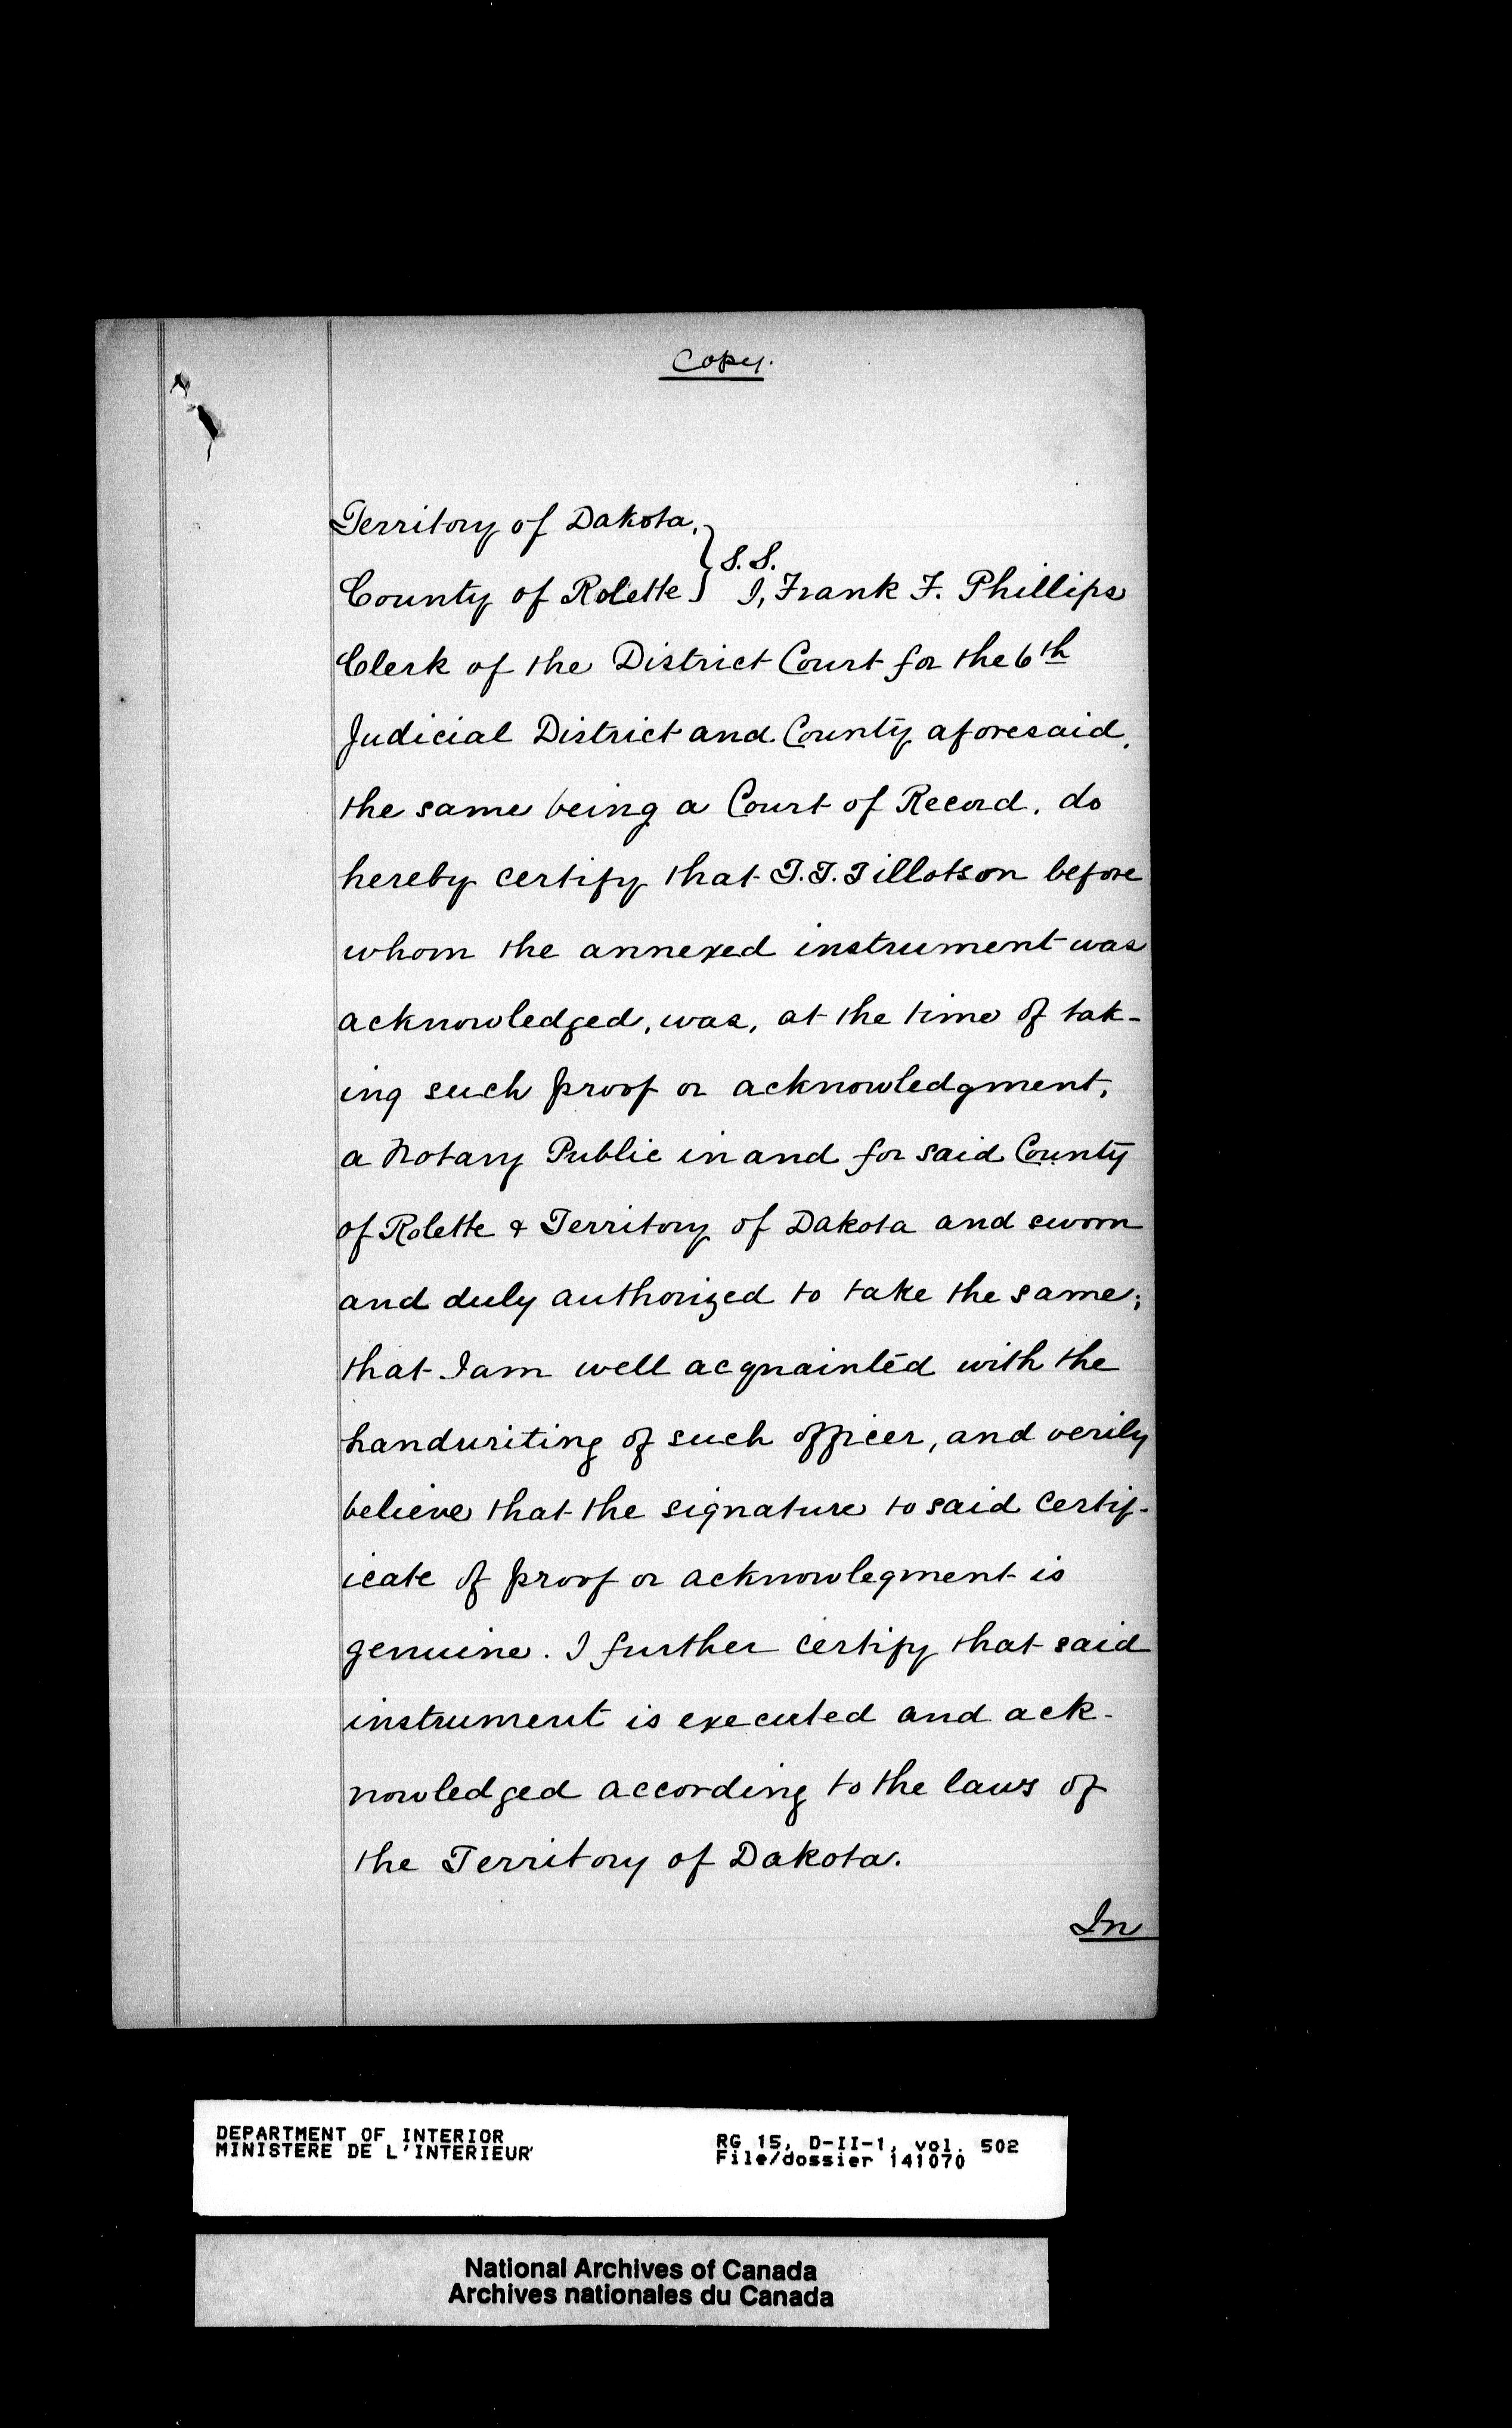 Copy.
Territory of Dakota,
} S.S.
County of Rolette I, Frank F. Phillips
Clerk of the District Court for the 6th
Judicial District and County aforesaid,
the same being a Court of Record, do
hereby certify that T.T. Tillotson before
whom the annexed instrument was
acknowledged, was, at the time of tak-
ing such proof or acknowledgment,
a Notary Public in and for said County
of Rolette & Territory of Dakota and sworn
and duly authorized to take the same;
that I am well acquainted with the
handwriting of such officer, and verily
believe that the signature to said certif-
icate of proof or acknowlegment is
genuine. I further certify that said
instrument is executed and ack-
nowledged according to the laws of
the Territory of Dakota.
In
DEPARTMENT OF INTERIOR
MINISTERE DE L'INTERIEUR
RG 15, D-II-1, vol. 502
File/dossier 141070
National Archives of Canada
Archives nationales du Canada